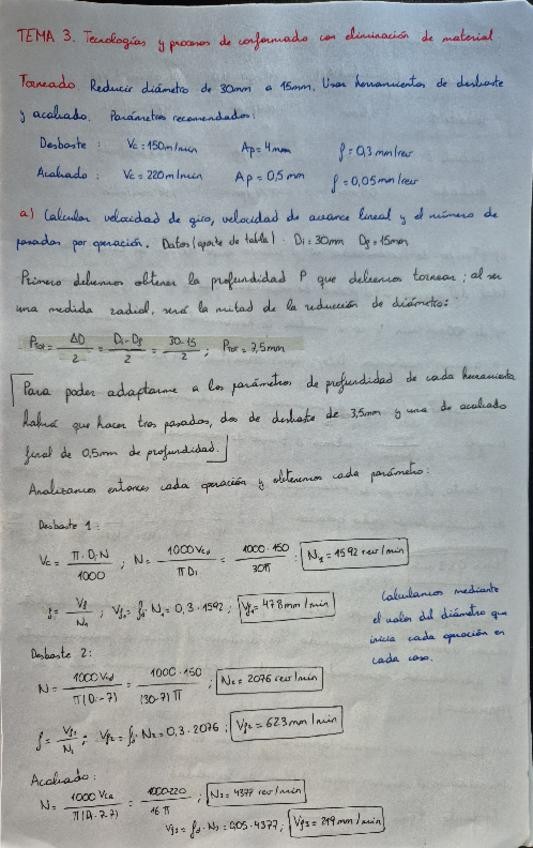 TEMA 3. Tecnologías y procesos de conformado con eliminación de material
Torneado. Reducir diámetro de 30mm a 15mm. Usar herramientas de desbaste
y acabado. Parámetros recomendados:
Desbaste : Vc = 150m/min Ap = 4mm f = 0,3 mm/rev
Acabado : Vc = 220m/min Ap = 0,5 mm f = 0,05 mm/rev
a) Calcular velocidad de giro, velocidad de avance lineal y el número de
pasadas por operación. Datos (aparte de tabla) · Di = 30mm Df = 15mm
Primero debemos obtener la profundidad P que debemos tornear; al ser
una medida radial, será la mitad de la reducción de diámetro:
Ptot = ΔD/2 = (Di - Df)/2 = (30-15)/2 ; Ptot = 7,5mm
Para poder adaptarme a los parámetros de profundidad de cada herramienta
habrá que hacer tres pasadas, dos de desbaste de 3,5mm y una de acabado
final de 0,5mm de profundidad.
Analizamos entonces cada operación y obtenemos cada parámetro:
Desbaste 1:
Vc = π·Di·N/1000 ; N = 1000Vcd/πDi = 1000·150/30π ; N1 = 1592 rev/min
f = Vf/N1 ; Vf1 = fd·N1 = 0,3·1592 ; Vf1 = 478mm/min
Calculamos mediante
el valor del diámetro que
inicia cada operación en
cada caso.
Desbaste 2:
N = 1000Vcd/π(Di-7) = 1000·150/(30-7)π ; N2 = 2076 rev/min
f = Vf2/N1 ; Vf2 = fd·N2 = 0,3·2076 ; Vf2 = 623mm/min
Acabado:
N = 1000Vca/π(Di-7-7) = 1000·220/16π ; N3 = 4377 rev/min
Vf3 = fd·N3 = 0,05·4377 ; Vf3 = 219mm/min